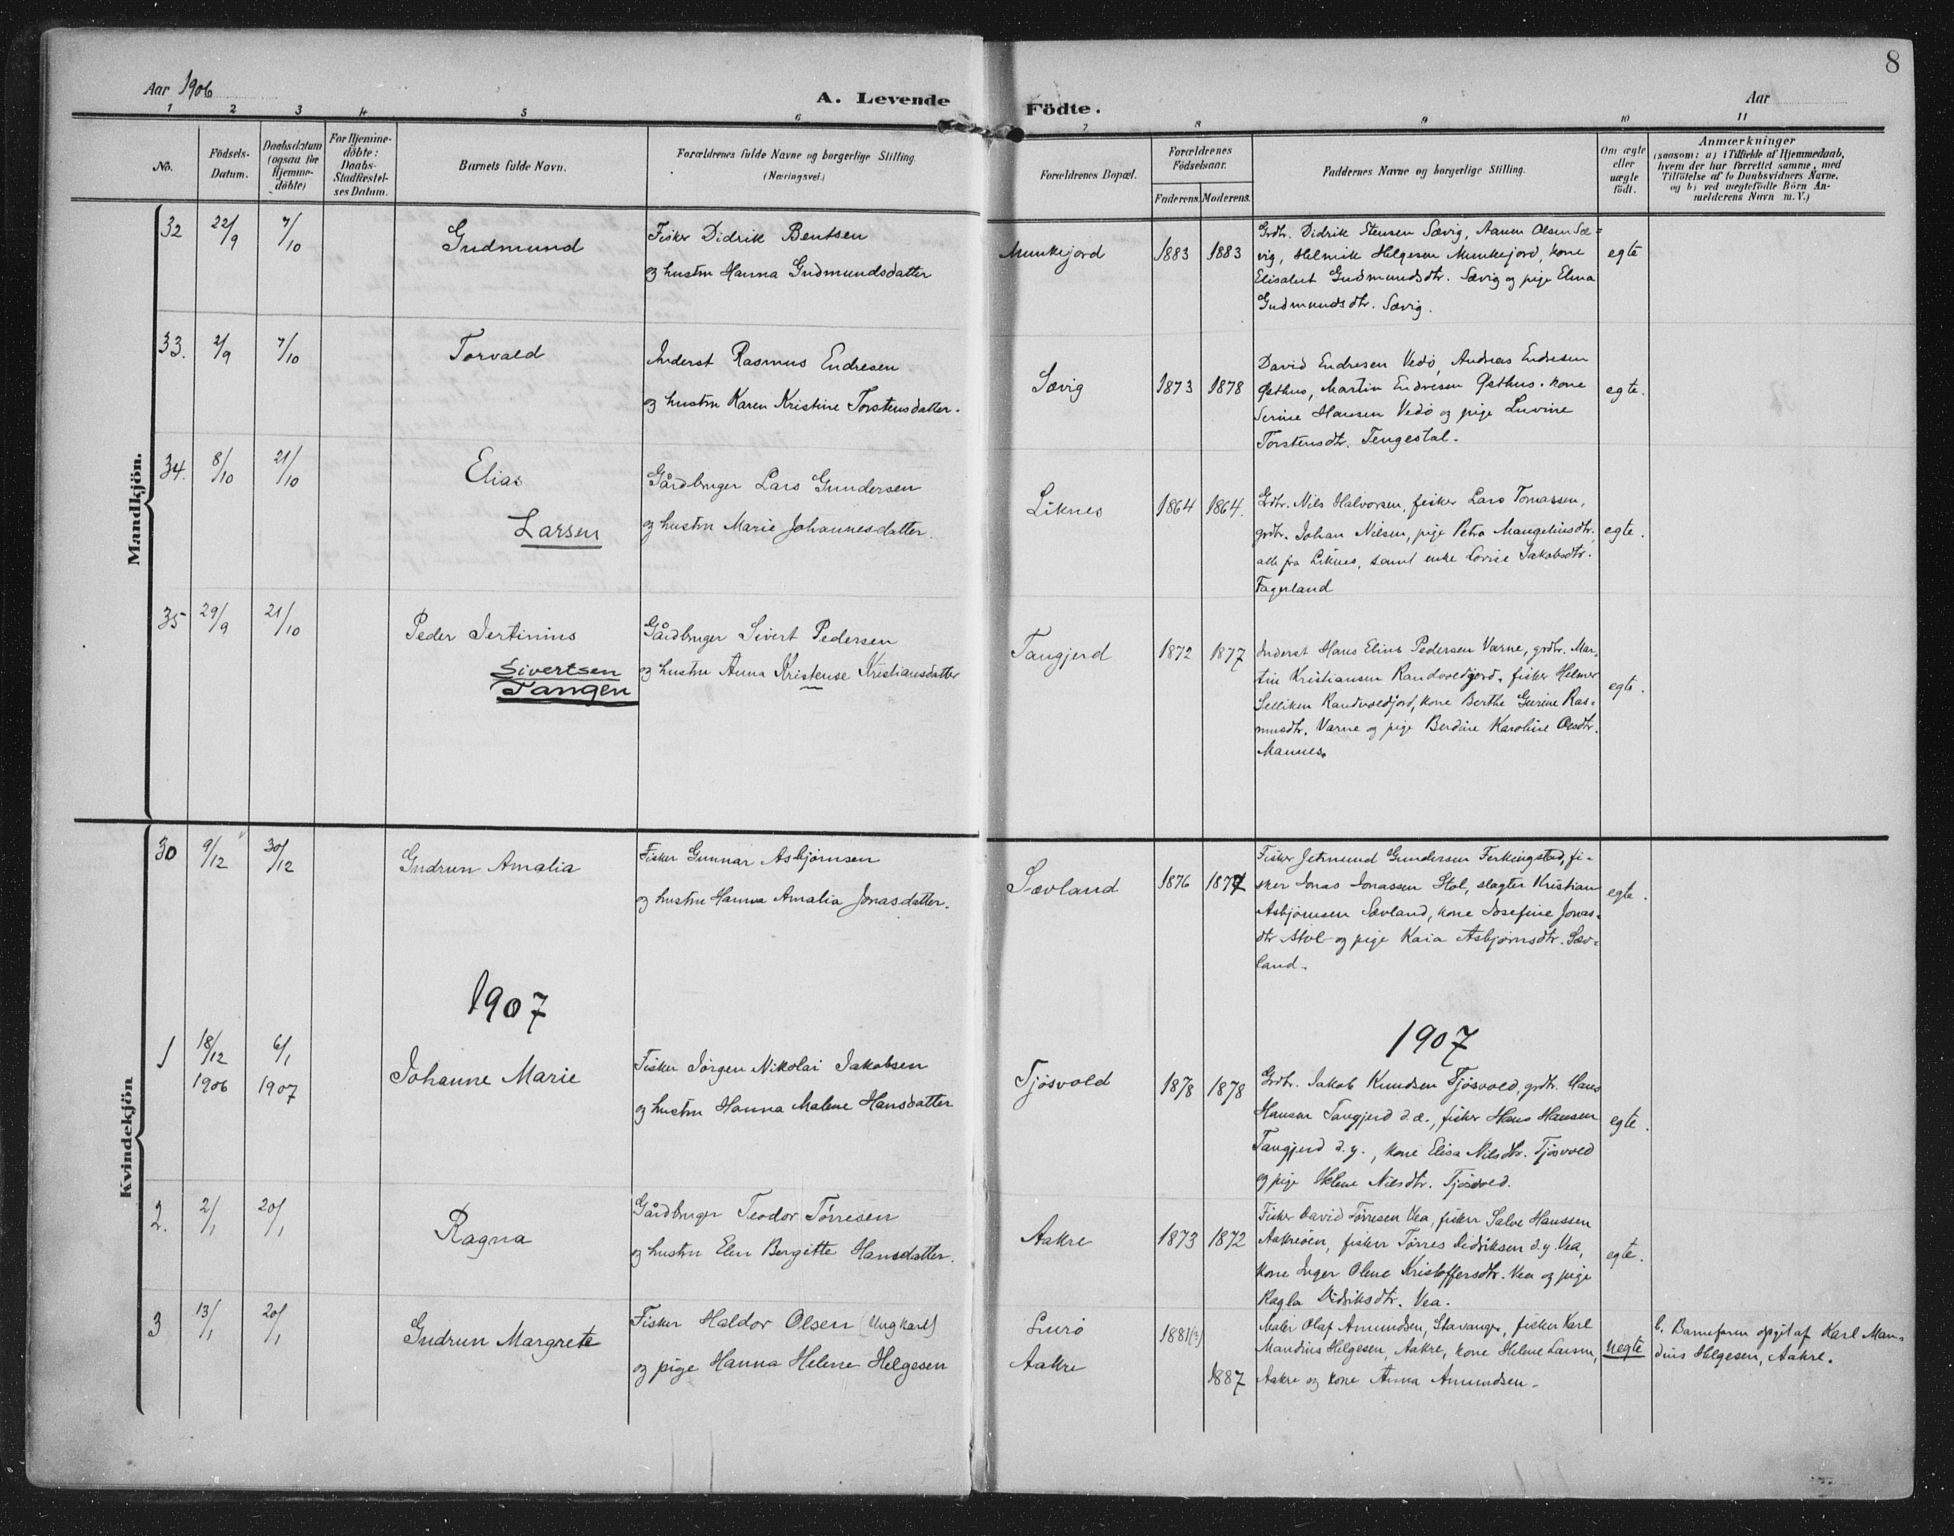 Aar 1906
A. Levende Födte.
Aar
8
1 2 3 4 5 6 7 8 9 10 11
No.
Födsels-
Datum.
Daabsdatum
(ogsaa for
Hjemme-
döbte)
For Hjemme-
döbte:
Daabs-
Stadfæstel-
ses Datum.
Barnets fulde Navn.
Forældrenes fulde Navne og borgerlige Stilling
(Næringsvei.)
Forældrenes Bopæl.
Forældrenes
Födselsaar.
Faderens. Moderens.
Faddernes Navne og borgerlige Stilling.
Om ægte
eller
uægte
födt.
Anmærkninger
(saasom: a) i Tilfælde af Hjemmedaab,
hvem der har forrettet samme, med
Tilföielse af to Daabsvidners Navne,
og b) ved uegtefödte Börn An-
melderens Navn m. V.)
Mandkjön.
32
22/9
7/10
Gudmund
Fisker Didrik Bentsen
og hustru Hanna Gudmundsdatter
Munkejord
1883
1883
Grdbr. Didrik Stensen Sævig, Aanen Olsen Sæ-
vig, Helmik Helgesen Munkejord, kone
Elisabet Gudmundsdtr. Sævig og pige Elina
Gudmundsdtr. Sævig.
egte
33.
2/9
7/10
Torvald
Inderst Rasmus Endresen
og hustru Karen Kristine Torstensdatter.
Sævig
1873
1878
David Endresen Vedø, Andreas Endresen
Østhus, Martin Endresen Østhus, kone
Serine Hansen Vedø og pige Luvine
Torstensdtr. Tengesdal.
egte.
34.
8/10
21/10
Elias
Larsen
Gårdbruger Lars Gundersen
og hustru Marie Johannesdatter.
Liknes
1864
1864.
Grdbr. Nils Halvorsen, fisker Lars Tomassen,
grdbr. Johan Nilsen, pige Petra Mangeliusdtr.
alle fra Liknes, samt enke Lovise Jakobsdtr.
Fagerland
egte.
35
29/9
21/10
Peder Jertinius
Sivertsen
Tangen
Gårdbruger Sivert Pedersen
og hustru Anna Kristense Kristiansdatter
Tangjerd
1872
1877
Inderst Hans Elius Pedersen Varne, grdbr. Mar-
tin Kristiansen Randvedjord, fisker Helmer
Selliken Randvoldjord, kone Berthe Gurine Ras-
musdtr. Varne og pige Berdine Karoline Olsdtr.
Mannes.
egte.
Kvindekjön
30
9/12
30/12
Gudrun Amalia
Fisker Gunnar Asbjørnsen
og hustru Hanna Amalia Jonasdatter.
Sævland
1876
1877
Fisker Jetmund Gundersen Ferkingstad, fi-
sker Jonas Jonassen Stol, slagter Kristian
Asbjørnsen Sævland, kone Josefine Jonas-
dtr Stol og pige Kaia Asbjørnsdtr. Sæv-
land.
egte.
1907
1907
1
18/12
1906
6/1
1907
Johanne Marie
Fisker Jørgen Nikolai Jakobsen
og hustru Hanna Malene Hansdatter
Tjøsvold
1878
1878
Grdbr. Jakob Knudsen Tjøsvold, grdbr. Hans
Hansen Tangjerd d.æ., fisker Hans Hansen
Tangjerd d.y., kone Elisa Nilsdtr. Tjøsvold
og pige Helene Nilsdtr. Tjøsvold.
egte.
2.
2/1
20/1
Ragna
Gårdbruger Teodor Tørresen
og hustru Elen Bergitte Hansdatter.
Aakre
1873
1872
Fisker David Tørresen Vea, fisker Salve Hanssen
Aakreøen, fisker Tørres Didriksen d.y. Vea,
kone Inger Oline Kristoffersdtr. Vea og pige
Ragla Didriksdtr. Vea.
egte.
3
13/1
20/1
Gudrun Margrete
Fisker Haldor Olsen (Ungkarl)
og pige Hanna Helene Helgesen
Lurø
Aakre
1881(?)
1887
Maler Olaf Amundsen, Stavanger, fisker Karl
Mandius Helgesen, Aakre, kone Helene Larsen,
Aakre og kone Anna Amundsen.
uegte
b. Barnefaren opgit af Karl Man-
dius Helgesen, Aakre.